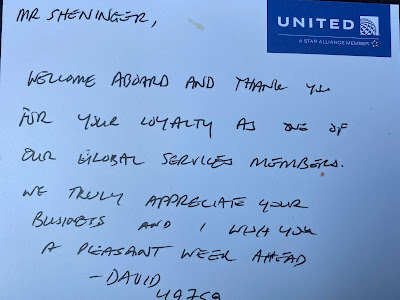 MR SHENINGER,
UNITED
A STAR ALLIANCE MEMBER
WELCOME ABOARD AND THANK YOU
FOR YOUR LOYALTY AS ONE OF
OUR GLOBAL SERVICES MEMBERS.
WE TRULY APPRECIATE YOUR
BUSINESS AND I WISH YOU
A PLEASANT WEEK AHEAD
- DAVID